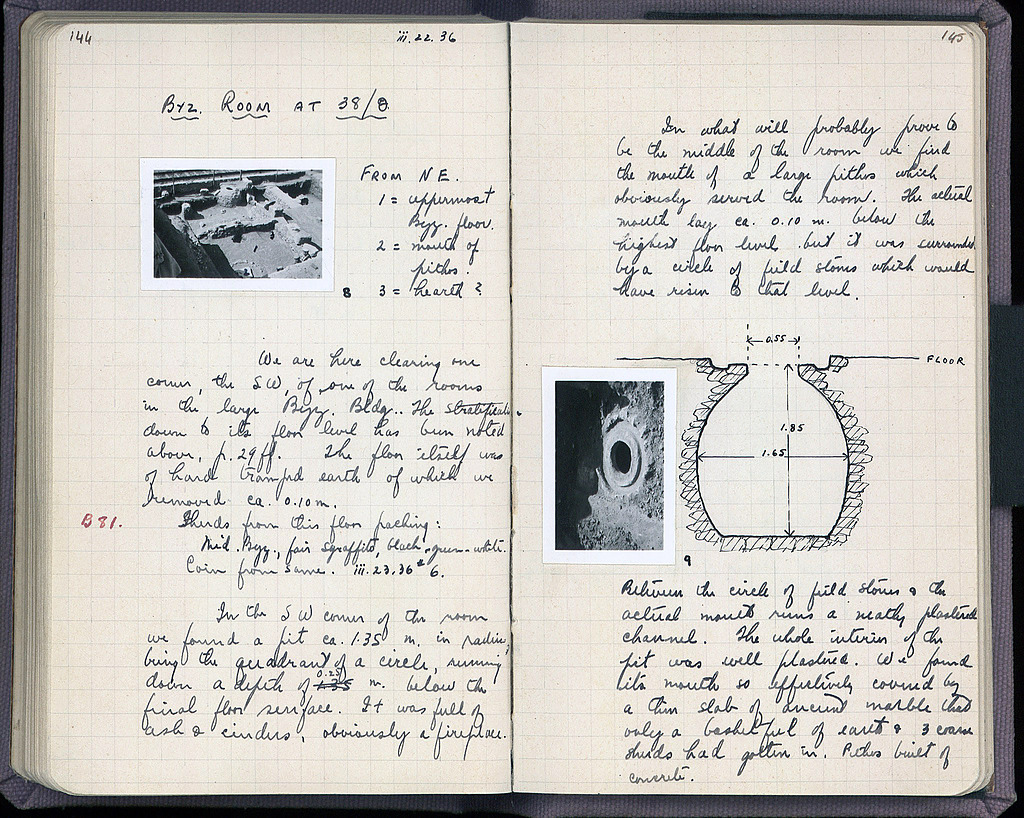 144
iii. 22. 36
Byz. Room at 38/Θ
From NE.
1 = uppermost
Byz. floor.
2 = mouth of
pithos.
3 = hearth?
8
We are here clearing one
corner, the SW, of one of the rooms
in the large Byz. Bldg.. The stratification
down to its floor level has been noted
above, p. 29 ff. The floor itself was
of hard tramped earth of which we
removed ca. 0.10 m.
B81. Sherds from this floor packing:
Mid. Byz., fair sgraffito, black-green-white.
Coin from same. iii.23.36 # 6.
In the SW corner of the room
we found a pit ca. 1.35 m. in radius,
being the quadrant of a circle, running
down a depth of 0.25 m. below the
final floor surface. It was full of
ash & cinders, obviously a fireplace.
145
In what will probably prove to
be the middle of the room we find
the mouth of a large pithos which
obviously served the room. The actual
mouth lay ca. 0.10 m. below the
highest floor level but it was surrounded
by a circle of field stones which would
have risen to that level.
0.55
FLOOR
1.85
1.65
9
Between the circle of field stones & the
actual mouth runs a neatly plastered
channel. The whole interior of the
pit was well plastered. We found
its mouth so effectively covered by
a thin slab of ancient marble that
only a basketful of earth & 3 coarse
sherds had gotten in. Pithos built of
concrete.